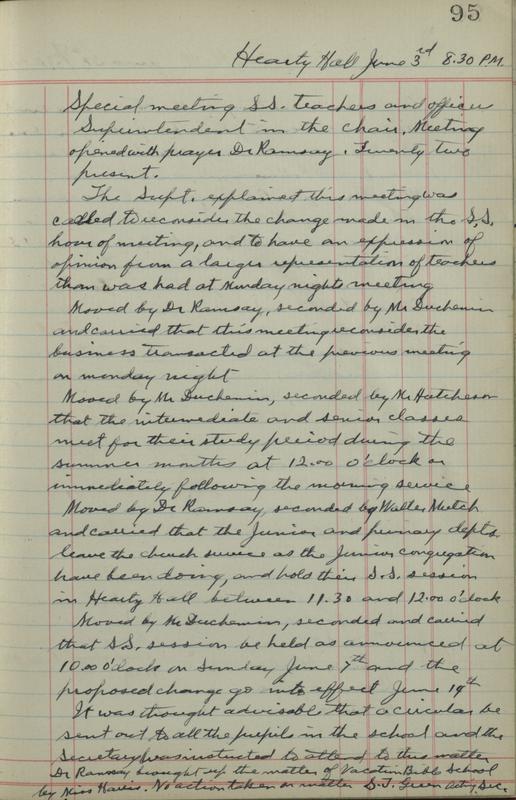 95
Hearty Hall June 3rd 8.30 P.M.
Special meeting S.S. teachers and officers
Superintendent in the chair. Meeting
opened with prayer Dr Ramsay. Twenty two
present.
The Supt. explained this meeting was
called to reconsider the change made in the S.S.
hour of meeting, and to have an expression of
opinion from a larger representation of teachers
than was had at Monday nights meeting
Moved by Dr Ramsay, seconded by Mr Duchemin
and carried that this meeting reconsider the
business transacted at the previous meeting
on monday night
Moved by Mr Duchemin, seconded by Mr Hutcheson
that the intermediate and senior classes
meet for their study period during the
summer months at 12.00 o'clock or
immediately following the morning service
Moved by Dr Ramsay, seconded by Walter Mutch
and carried that the Junior and primary depts
leave the church service as the Junior congregation
have been doing, and hold their S.S. session
in Hearty Hall between 11.30 and 12.00 o'clock
Moved by Mr Duchemin, seconded and carried
that S.S. session be held as announced at
10.00 o'clock on Sunday June 7th and the
proposed change go into effect June 14th
It was thought advisable that a circular be
sent out to all the pupils in the school and the
Secretary was instructed to attend to this matter
Dr Ramsay brought up the matter of Vacation Bible School
by Miss No action taken on matter D.J. Green Actg Sec.